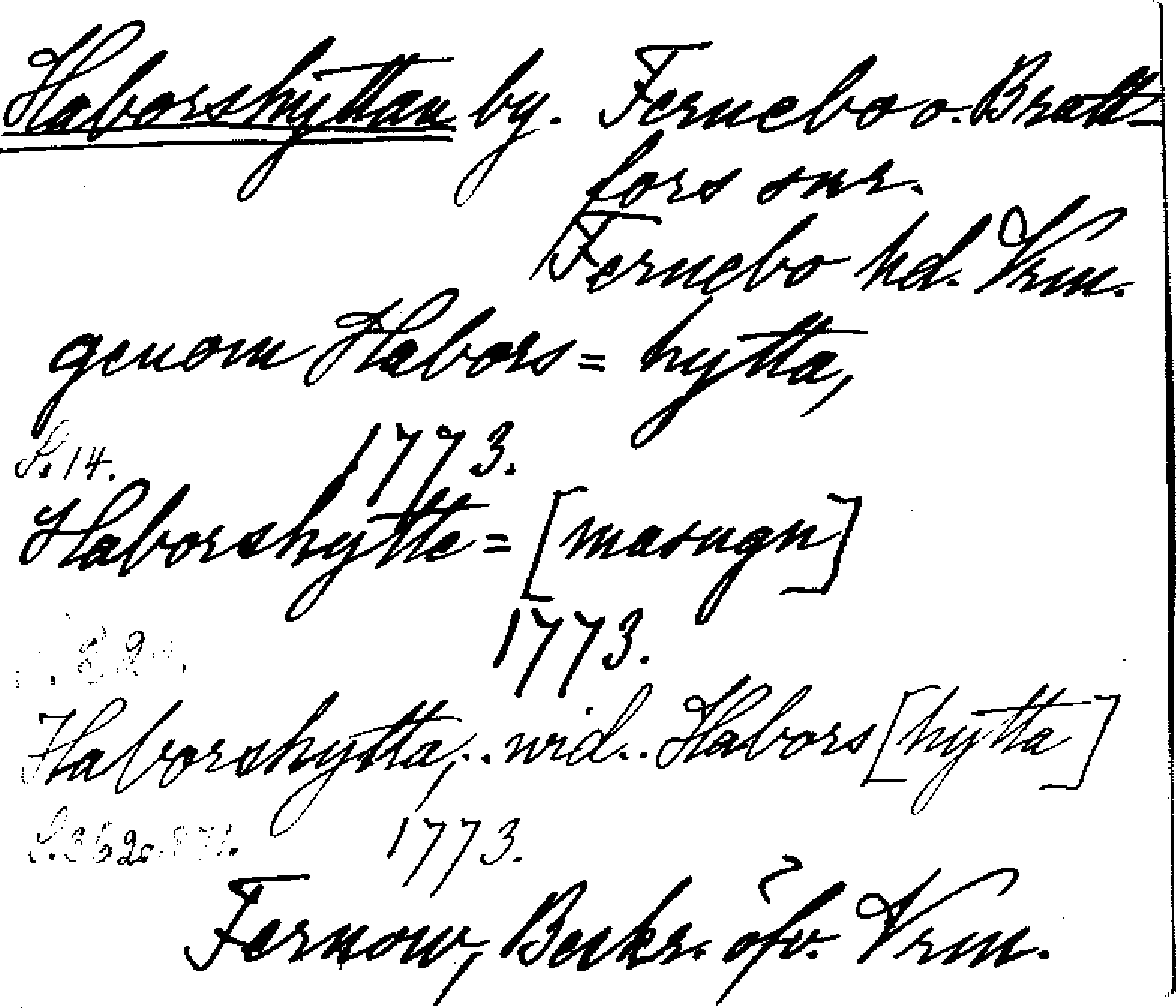 Haborshyttan by. Fernebo o. Bratt-
fors snr.
Fernebo hd. Vrm.
genom Habors= hytta,
S. 14. 1773.
Haborshytte= [masugn]
1773.
Haborshytta,.. wid.. Habors[hytta]
1773.
Fernow, Beskr. öfv. Vrm.